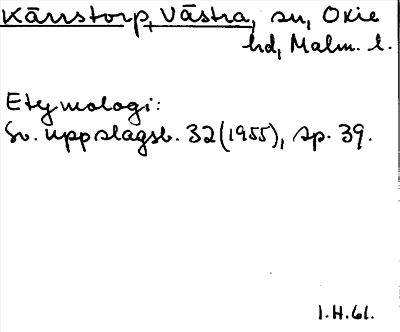 Kärrstorp, Västra, sn, Oxie
hd, Malm. l.
Etymologi:
Sv. uppslagsb. 32 (1955), sp. 39.
I.H.61.